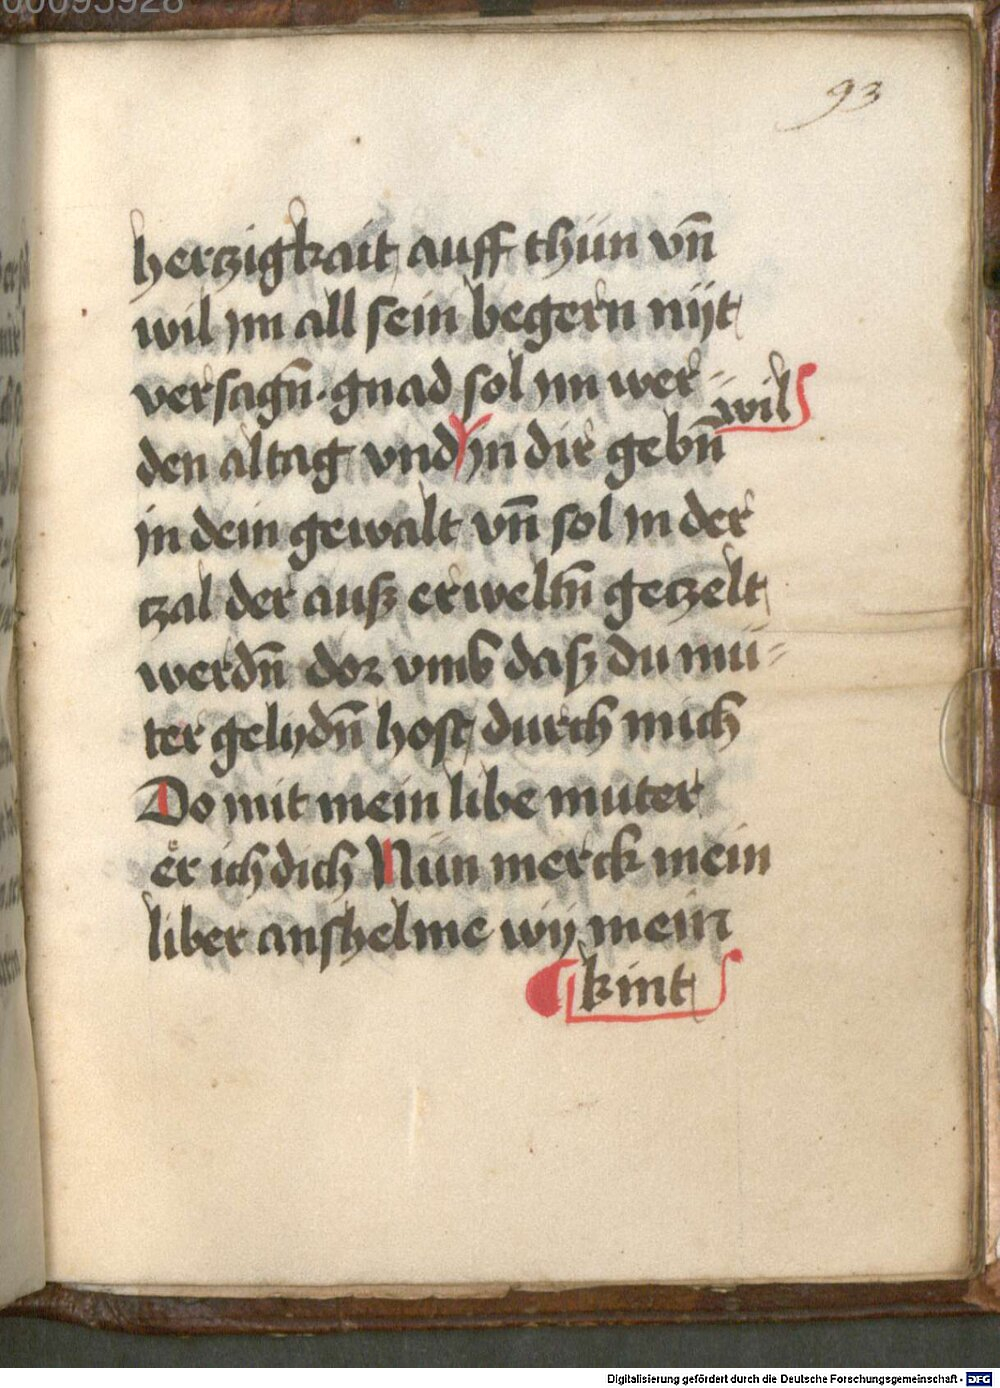 93
herczigkait auff thün vn̄
wil ym all sein begern nijt
versagn̄. gnad sol ym wer-
wil
den altag vnd yn dir gebn̄
in dein gewalt vn̄ sol in der
tzal der ausz erweltn̄ geczelt
werdn̄ dor vmb dasz du mü-
ter gelydn̄ host durch mich
Do mit mein libe muter
er ich dich Nün merck mein
liber anshelme wij mein
kint
Digitalisierung gefördert durch die Deutsche Forschungsgemeinschaft - DFG